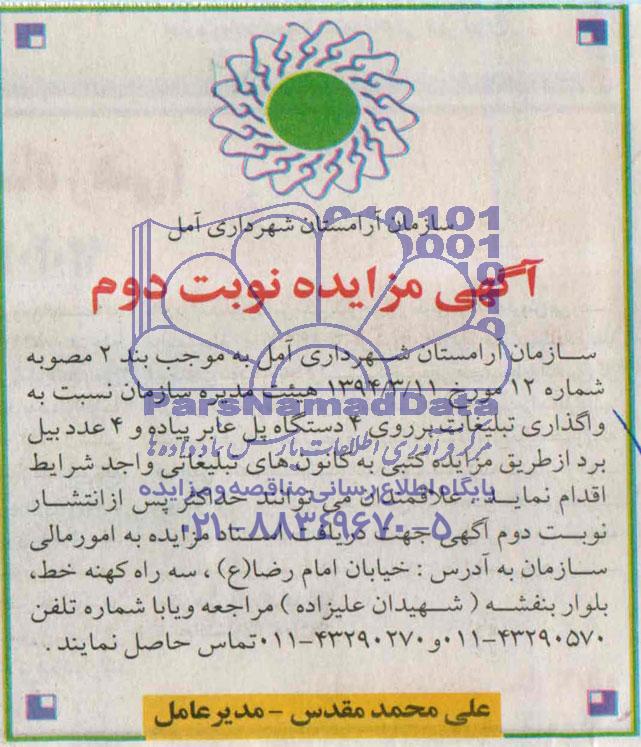 سازمان آرامستان شهرداری آمل
آگهی مزایده نوبت دوم
سازمان آرامستان شهرداری آمل به موجب بند ۲ مصوبه
شماره ۱۲ مورخ ۱۳۹۴/۳/۱۱ هیئت مدیره سازمان نسبت به
واگذاری تبلیغات برروی ۴ دستگاه پل عابر پیاده و ۴ عدد بیل
برد ازطریق مزایده کتبی به کانون های تبلیغاتی واجد شرایط
اقدام نماید . علاقمندان می توانند حداکثر پس ازانتشار
نوبت دوم آگهی جهت دریافت اسناد مزایده به امورمالی
سازمان به آدرس : خیابان امام رضا(ع) ، سه راه کهنه خط،
بلوار بنفشه ( شهیدان علیزاده ) مراجعه ویابا شماره تلفن
۰۱۱-۴۳۲۹۰۵۷۰ و ۰۱۱-۴۳۲۹۰۲۷۰ تماس حاصل نمایند .
علی محمد مقدس - مدیرعامل
010101
0001
ParsNamadData
مرکز فرآوری اطلاعات پارس نماد داده ها
پایگاه اطلاع رسانی مناقصه و مزایده
۰۲۱-۸۸۳۴۹۶۷۰-۵